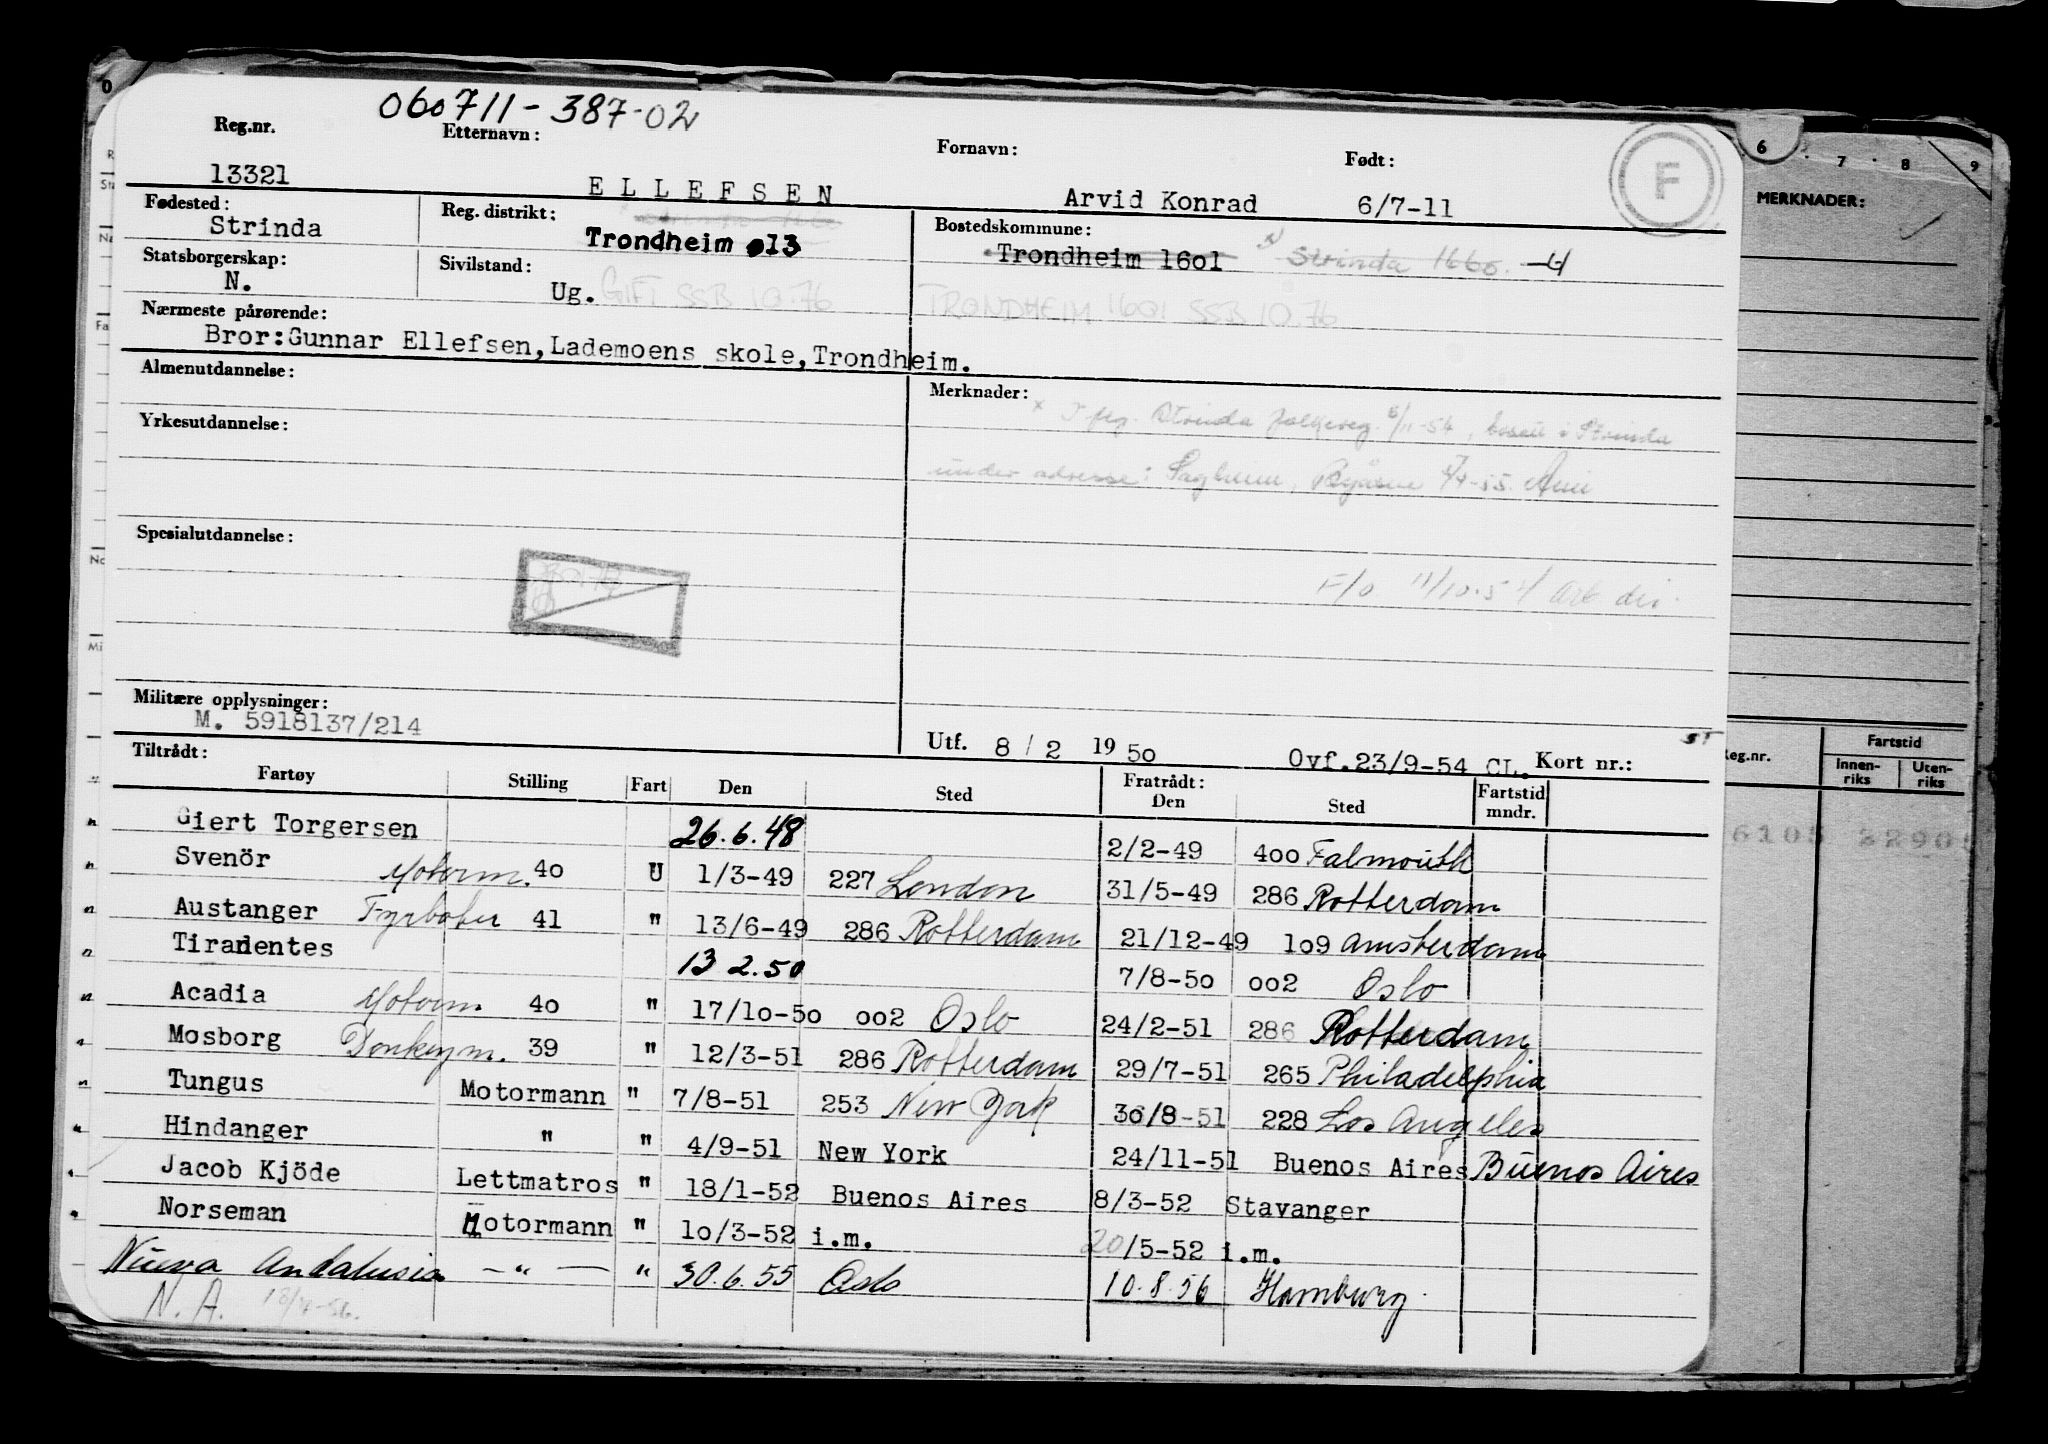 060711-387-02
Reg.nr. Etternavn: Fornavn: Født:
13321 ELLEFSEN Arvid Konrad 6/7-11
F
Fødested: Reg. distrikt: Bostedskommune:
Strinda Trondheim 013 Trondheim 1601 Strinda 1660. -4
Statsborgerskap: Sivilstand:
N. Ug. GIFT SSB 10.76 TRONDHEIM 1601 SSB 10.76
Nærmeste pårørende:
Bror:Gunnar Ellefsen,Lademoens skole,Trondheim.
Almenutdannelse: Merknader:
x Strinda folkereg. 11-54, bosatt i Strinda
Yrkesutdannelse:
under adresse: Byåsen
Spesialutdannelse:
F/o 11/10-54 Arb dir.
Militære opplysninger:
M. 5918137/214
Utf. 8/2 1950 Ovf.23/9-54 CL. Kort nr.: ST
Tiltrådt: Fratrådt:
Fartøy Stilling Fart Den Sted Den Sted Fartstid mndr.
Giert Torgersen 26.6.48 2/2-49 400 Falmouth
Svenör Motorm. 40 U 1/3-49 227 London 31/5-49 286 Rotterdam
Austanger Fyrbøter 41 " 13/6-49 286 Rotterdam 21/12-49 109 Amsterdam
Tiradentes 13 2.50 7/8-50 002 Oslo
Acadia Motorm. 40 " 17/10-50 002 Oslo 24/2-51 286 Rotterdam
Mosborg Donkeym. 39 " 12/3-51 286 Rotterdam 29/7-51 265 Philadelphia
Tungus Motormann " 7/8-51 253 New York 30/8-51 228 Los Angeles
Hindanger " " 4/9-51 New York 24/11-51 Buenos Aires Buenos Aires
Jacob Kjöde Lettmatros " 18/1-52 Buenos Aires 8/3-52 Stavanger
Norseman Motormann " 10/3-52 i.m. 20/5-52 i.m.
Nueva Andalusia -"- " 30.6.55 Oslo 10.8.56 Hamburg
N.A.
6 7 8 9
MERKNADER:
Reg.nr. Fartstid
Innen-riks Uten-riks
6105 2290